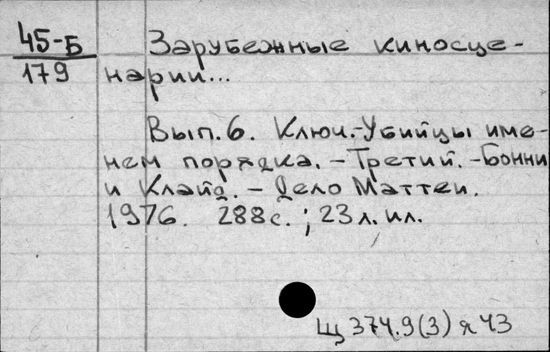 45-Б
179
Зарубежные киносце-
нарии...
Вып.6. Ключ.-Убийцы име-
нем порядка. - Третий. -Бонни
и Клайд. - Дело Маттеи.
1976. 288с. ; 23л. ил.
Щ 374.9(3) я 43